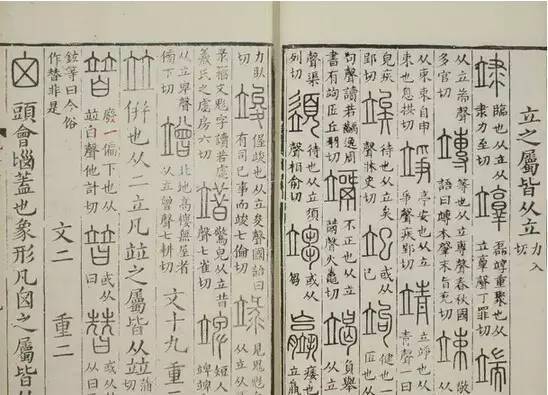 立之屬皆从立 力入切
𥪐 臨也从立从隶力至切 𥪉 磊𥪉重聚也从立𦎫聲丁罪切 端
多官切 竱 等也从立專聲春秋國語曰竱本肇末旨兖切 竦 敬
从立从束束自申束也息拱切 竫 亭安也从立爭聲疾郢切 靖 立竫也从立青聲
皃疾郢切 竢 待也从立矣聲牀史切 𥩳 或从巳 竘 健也一匠也
句聲讀若齲逸周書有竘匠丘羽切 不正也从立聲火鼃切 竭 負舉从立
聲渠列切 𩓣 待也从立須聲相俞切 或从芻 痿也从立
力臥切 竣 偓竣也从立夋聲國語曰有司已事而竣七倫切 見鬼鬽从立从
彔籀文鬽字讀若虙羲氏之虙房六切 䇎 驚皃从立昔聲七雀切 䇑 短人
从立卑聲傍下切 竲 北地高樓無屋者从立曾聲七耕切 文十九 重二
竝 併也从二立凡竝之屬皆从竝 蒲
廢一偏下也从竝白聲他計切 或从曰 或从从曰
鉉等曰今俗作替非是 文二 重二
囟 頭會匘蓋也象形凡囟之屬皆从